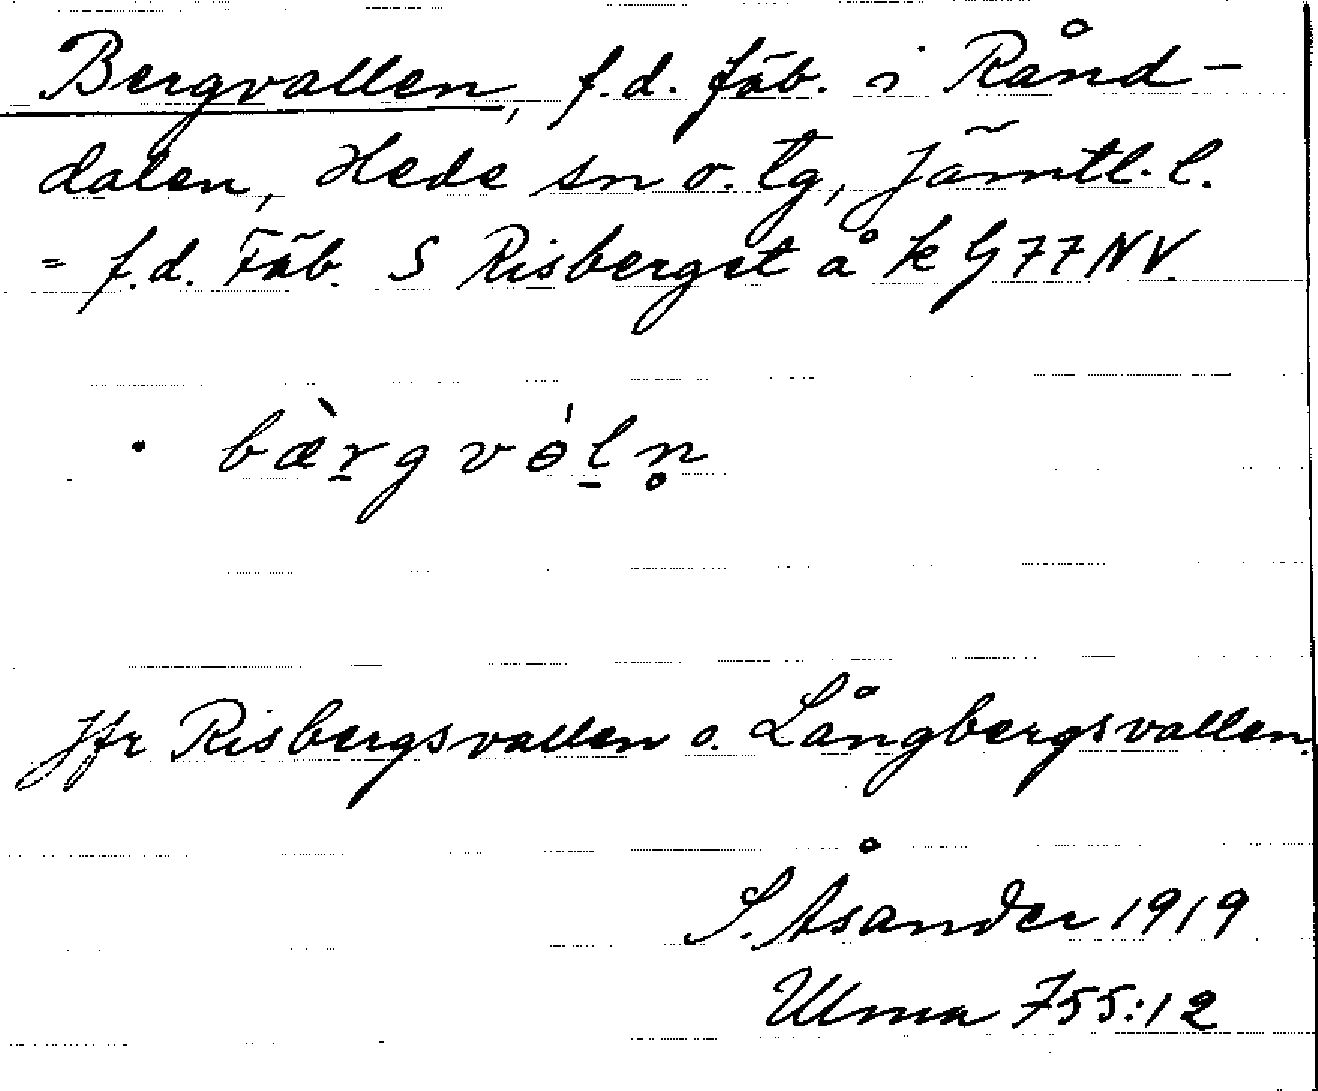 Bergvallen, f.d. fäb. i Rånd-
dalen, Hede sn o. tg, Jämtl. l.
= f.d. Fäb. S Risberget å k G 77 NV.
• bæ̀r̲g vɵ́l̲n̥
Jfr Risbergsvallen o. Långbergsvallen.
S. Åsander 1919
Ulma 755:12